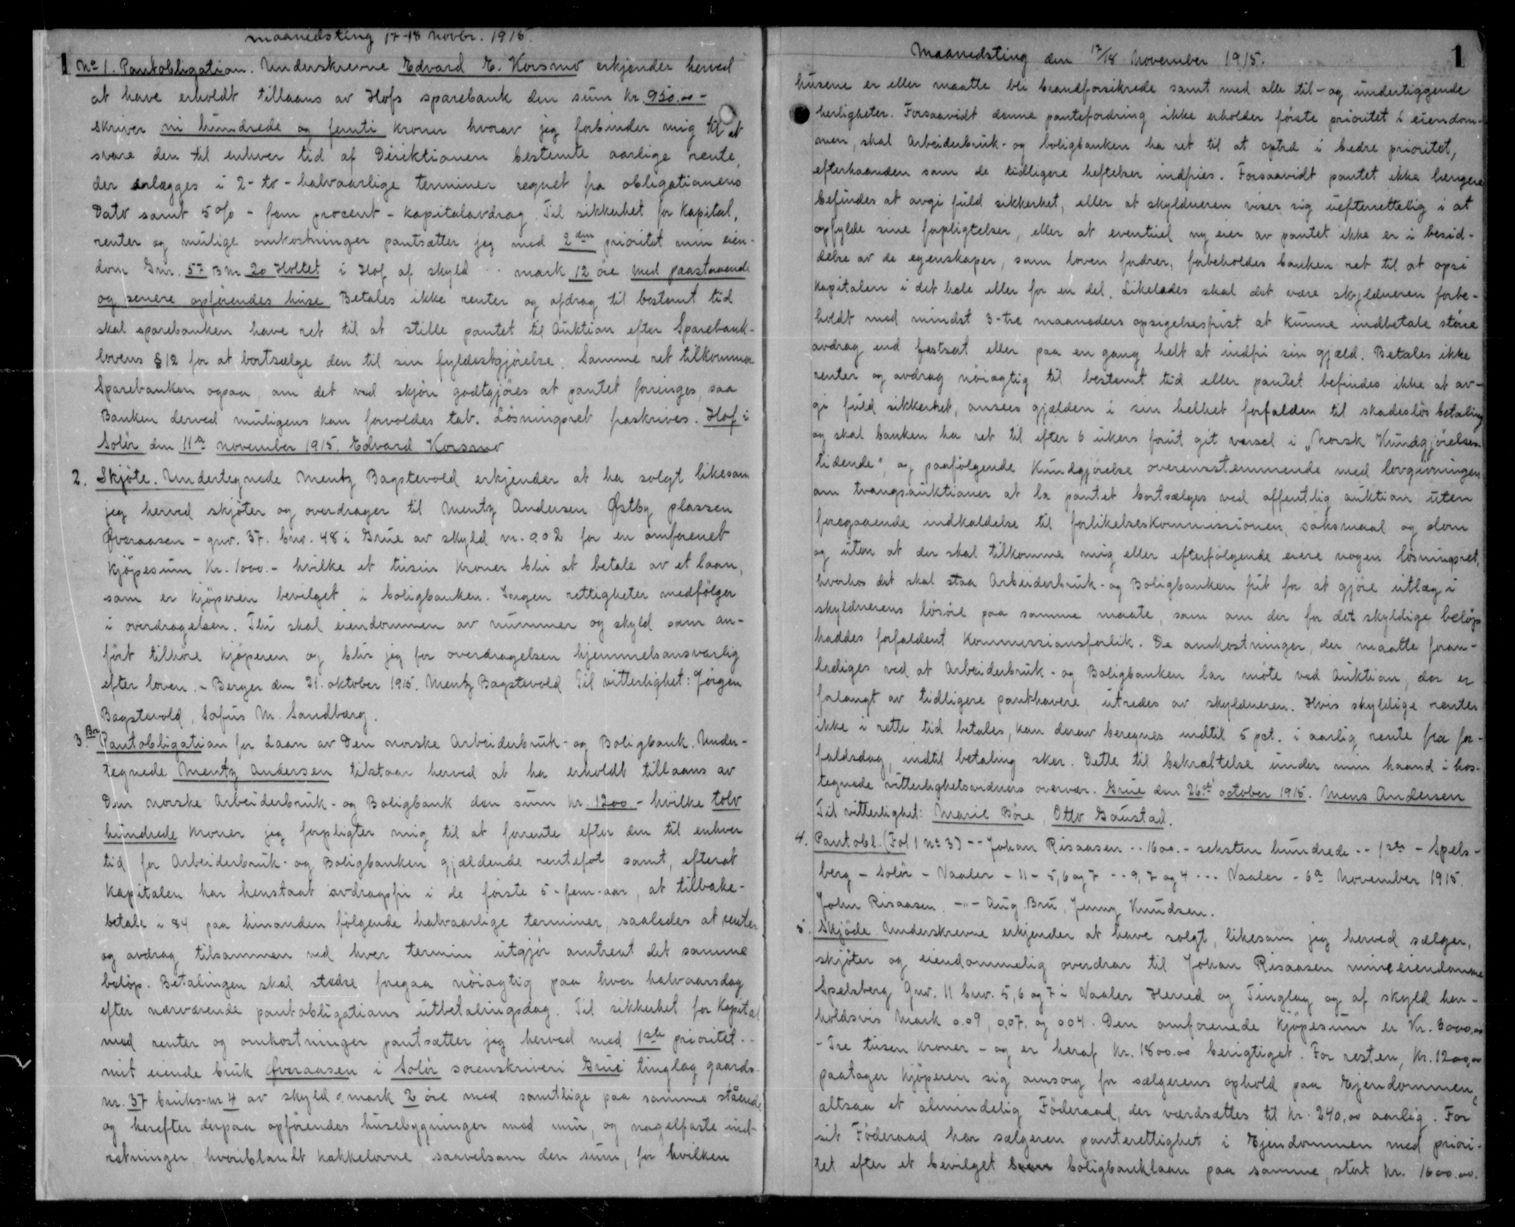 maanedsting 17-18 Novbr. 1915.
1 No 1. Pantobligation. Underskrevne Edvard E. Korsmo erkjender herved
at have erholdt tillaans av Hofs sparebank den sum kr. 950.00 -
skriver ni hundrede og femti kroner hvorav jeg forbinder mig til at
svare den til enhver tid af Direktionen bestemte aarlige rente,
der erlægges i 2 - to - halvaarlige terminer regnet fra obligationens
Dato samt 5% - fem procent - kapitalavdrag. Til sikkerhet for Kapital,
renter og mulige omkostninger pantsætter jeg med 2den prioritet min eien-
dom Gnr. 57 Bnr 20 Holtet i Hof af skyld .. mark 12 øre med paastaaende
og senere opførendes huse. Betales ikke renter og afdrag til bestemt tid
skal sparebanken have ret til at stille pantet til Auktion efter Sparebank-
lovens § 12 for at bortsælge den til sin fyldestgjørelse. Samme ret tilkommer
Sparebanken ogsaa, om det ved skjøn godtgjøres at pantet forringes, saa
Banken derved muligens kan forvoldes tab. Løsningsret fraskrives. Hof i
Solør den 11te november 1915. Edvard Korsmo
2. Skjøte. Undertegnede Mentz Bagstevold erkjender at ha solgt likesom
jeg herved skjøter og overdrager til Mentz Andersen Østby plassen
Øveraasen - gnr. 37. bnr. 48 i Grue av skyld m. 902 for en omforenet
kjøpesum Kr. 1000.- hvilke et tusin kroner blir at betale av et laan,
som er kjøperen bevilget i boligbanken. Ingen rettigheter medfølger
i overdragelsen. Thi skal eiendommen av nummer og skyld som an-
ført tilhøre kjøperen og blir jeg for overdragelsen hjemmelsansvarlig
efter loven. - Berger den 31. oktober 1915. Mentz Bagstevold Til vitterlighet: Jørgen
Bagstevold, Sofus M. Sandberg.
3. Pantobligation for Laan av Den norske Arbeiderbruk- og Boligbank. Under-
tegnede Mentz Andersen tilstaar herved at ha erholdt tillaans av
Den norske Arbeiderbruk- og Boligbank den sum kr. 1200 - hvilke tolv
hundrede kroner jeg forpligter mig til at forrente efter den til enhver
tid for Arbeiderbruk- og Boligbanken gjældende rentefot samt, efterat
kapitalen har henstaat avdragsfri i de første 5 - fem - aar, at tilbake-
betale i 84 paa hinanden følgende halvaarlige terminer, saaledes at renter
og avdrag tilsammen ved hver termin utgjør omtrent det samme
beløp. Betalingen skal stedse foregaa nøiagtig paa hver halvaarsdag
efter nærværende pantobligations utbetalingsdag. Til sikkerhet for Kapital
med renter og omkostninger pantsætter jeg herved med 1ste prioritet ..
mit eiende bruk Øveraasen i Solør sorenskriveri Grue tinglag gaards-
nr. 37 bruks-nr 4 av skyld 0 mark 2 øre med samtlige paa samme stående
og herefter derpaa opførendes husebygninger med mur, og nagelfaste ind-
retninger, hveriblandt kakkelovne saavelsom den sum, for hvilken
Maanedsting den 17/18 November 1915. 1
husene er eller maatte bli brandforsikrede samt med alle til- og underliggende
herligheter. Forsaavidt denne pantefordring ikke erholder første prioritet i eiendom-
men, skal Arbeiderbruk- og boligbanken ha ret til at optræ i bedre prioritet,
efterhaanden som de tidligere heftelser indfries. Forsaavidt pantet ikke længere
befindes at avgi fuld sikkerhet, eller at skyldneren viser sig uefterrettelig i at
opfylde sine forpligtelser, eller at eventuel ny eier av pantet ikke er i besid-
delse av de egenskaper, som loven fordrer, forbeholdes banken ret til at opsi
kapitalen i det hele eller for en del. Likeledes skal det være skyldneren forbe-
holdt med mindst 3-tre maaneders opsigelsesfrist at kunne indbetale større
avdrag end fastsat eller paa en gang helt at indfri sin gjæld. Betales ikke
renter og avdrag nøiagtig til bestemt tid eller pantet befindes ikke at av-
gi fuld sikkerhet, ansees gjælden i sin helhet forfalden til skadesløs betaling
og skal banken ha ret til efter 6 ukers forut git varsel i „Norsk Kundgjørelses-
tidende“, og paafølgende Kundgjørelse overensstemmende med lovgivningen
om tvangsauktioner at la pantet bortsælges ved offentlig auktion uten
foregaaende indkaldelse til forlikelseskommissionen, søksmaal og dom
og uten at der skal tilkomme mig eller efterfølgende eiere nogen løsningsret,
hverhos det skal staa Arbeiderbruk- og Boligbanken frit for at gjøre utlæg i
skyldnerens løsøre paa samme maate, som om der for det skyldige beløp
haddes forfaldent Kommissionsforlik. De omkostninger, der maatte foran-
lediges ved at Arbeiderbruk- og Boligbanken lar møte ved Auktion, der er
forlangt av tidligere panthavere, utredes av skyldneren. Hvis skyldige renter
ikke i rette tid betales, kan derav beregnes indtil 5 pct. i aarlig rente fra for-
faldsdag, indtil betaling sker. Dette til bekræftelse under min haand i hos-
tegnede vitterlighetsvidners overvær. Grue den 26de october 1915. Mens Andersen
Til vitterlighet: Marie Børe, Otto Gaustad.
4. Pantobl. (Fol 1 No 3) -- Johan Risaasen .. 1600.- seksten hundrede -- 1ste - Spels-
berg - Solør - Vaaler - 11 - 5, 6 og 7 -- 9, 7 og 4 --- Vaaler - 6te November 1915.
John Risaasen. -"- Aug Bru, Jenny Knudsen.
5. Skjøde Underskrevne erkjender at have solgt, likesom jeg herved sælger,
skjøter og eiendommelig overdrar til Johan Risaasen mine eiendomme
Spelsberg Gnr. 11 bnr. 5, 6 og 7 i Vaaler Herred og Tinglag og af skyld hen-
holdsvis Mark 0.09, 0.07. og 004. Den omforenede Kjøpesum er Kr. 3000,00
- Tre tusen kroner - og er heraf Kr. 1800.00 berigtiget. For resten, Kr. 1200,00
paatager kjøperen sig omsorg for sælgerens ophold paa Ejendommen,
altsaa et almindelig Føderaad, der værdsættes til kr. 240,00 aarlig. For
sit Føderaad har sælgeren panterettighet i Ejendommen med priori-
tet efter et bevilget boligbanklaan paa samme, stort kr. 1600.00.